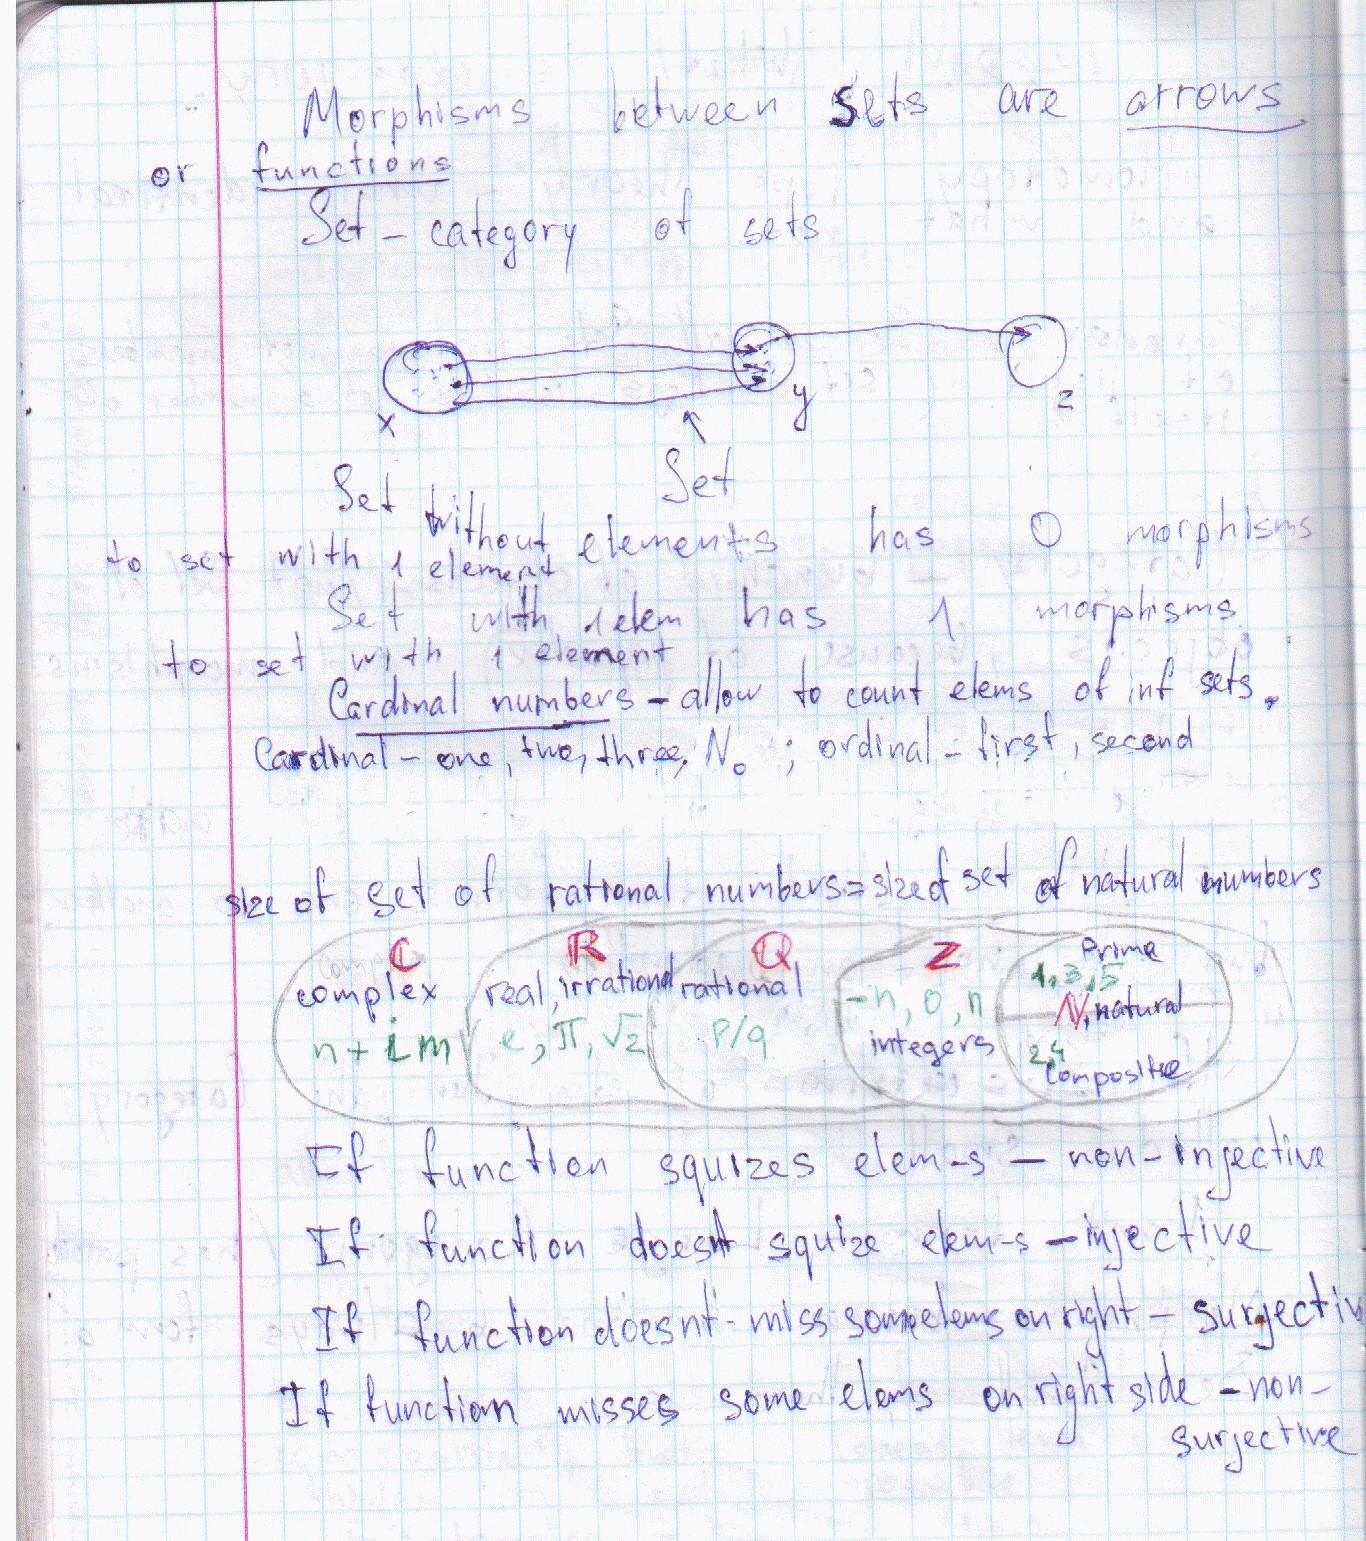 Morphisms between sets are arrows
or functions
Set – category of sets
x y z
Set
Set without elements has 0 morphisms
to set with 1 element
Set with 1 elem has 1 morphisms
to set with 1 element
Cardinal numbers – allow to count elems of inf sets.
Cardinal – one, two, three, N₀ ; ordinal – first, second
size of set of rational numbers = size of set of natural numbers
C R Q Z Prime
complex real, irrational rational -n, 0, n 1, 3, 5
n + im e, π, √2 p/q integers N, natural
2, 4
Composite
If function squizes elem-s – non-injective
If function doesnt squize elem-s – injective
If function doesnt miss some elems on right – surjectiv
If function misses some elems on right side – non-
surjective